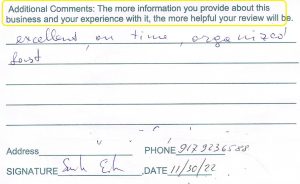 Additional Comments: The more information you provide about this
business and your experience with it, the more helpful your review will be.
excellent, on time, organized
fast
Address
PHONE 9179236588
SIGNATURE DATE 11/30/22